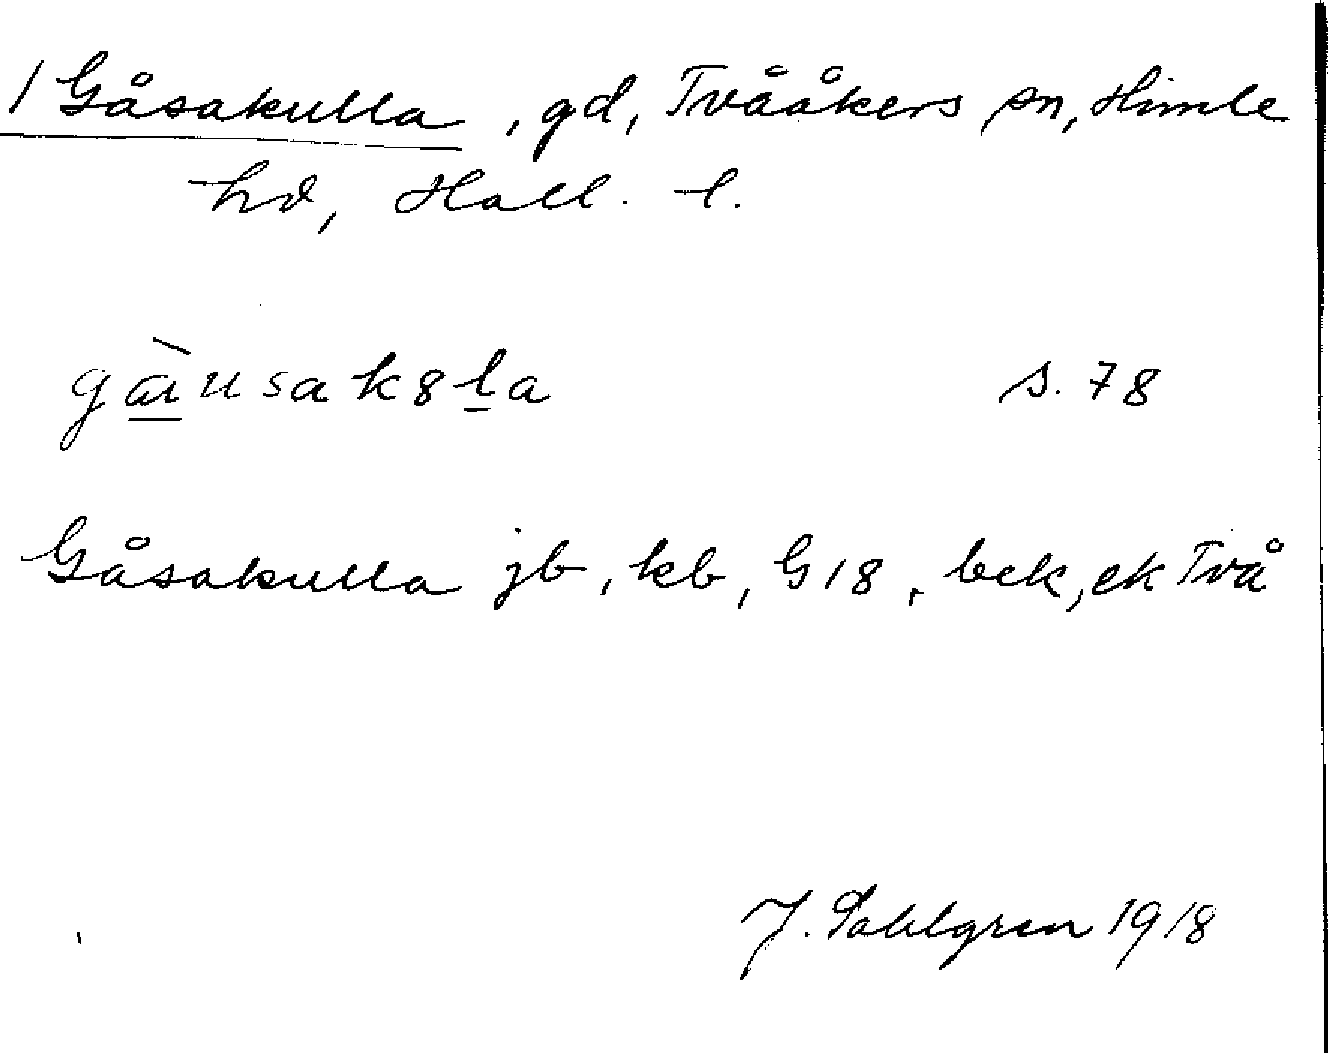 1 Gåsakulla, gd, Tvååkers sn, Himle
hd, Hall. l.
gàusak8la s. 78
Gåsakulla jb, kb, G18, bek, ek Två
J. Sahlgren 1918